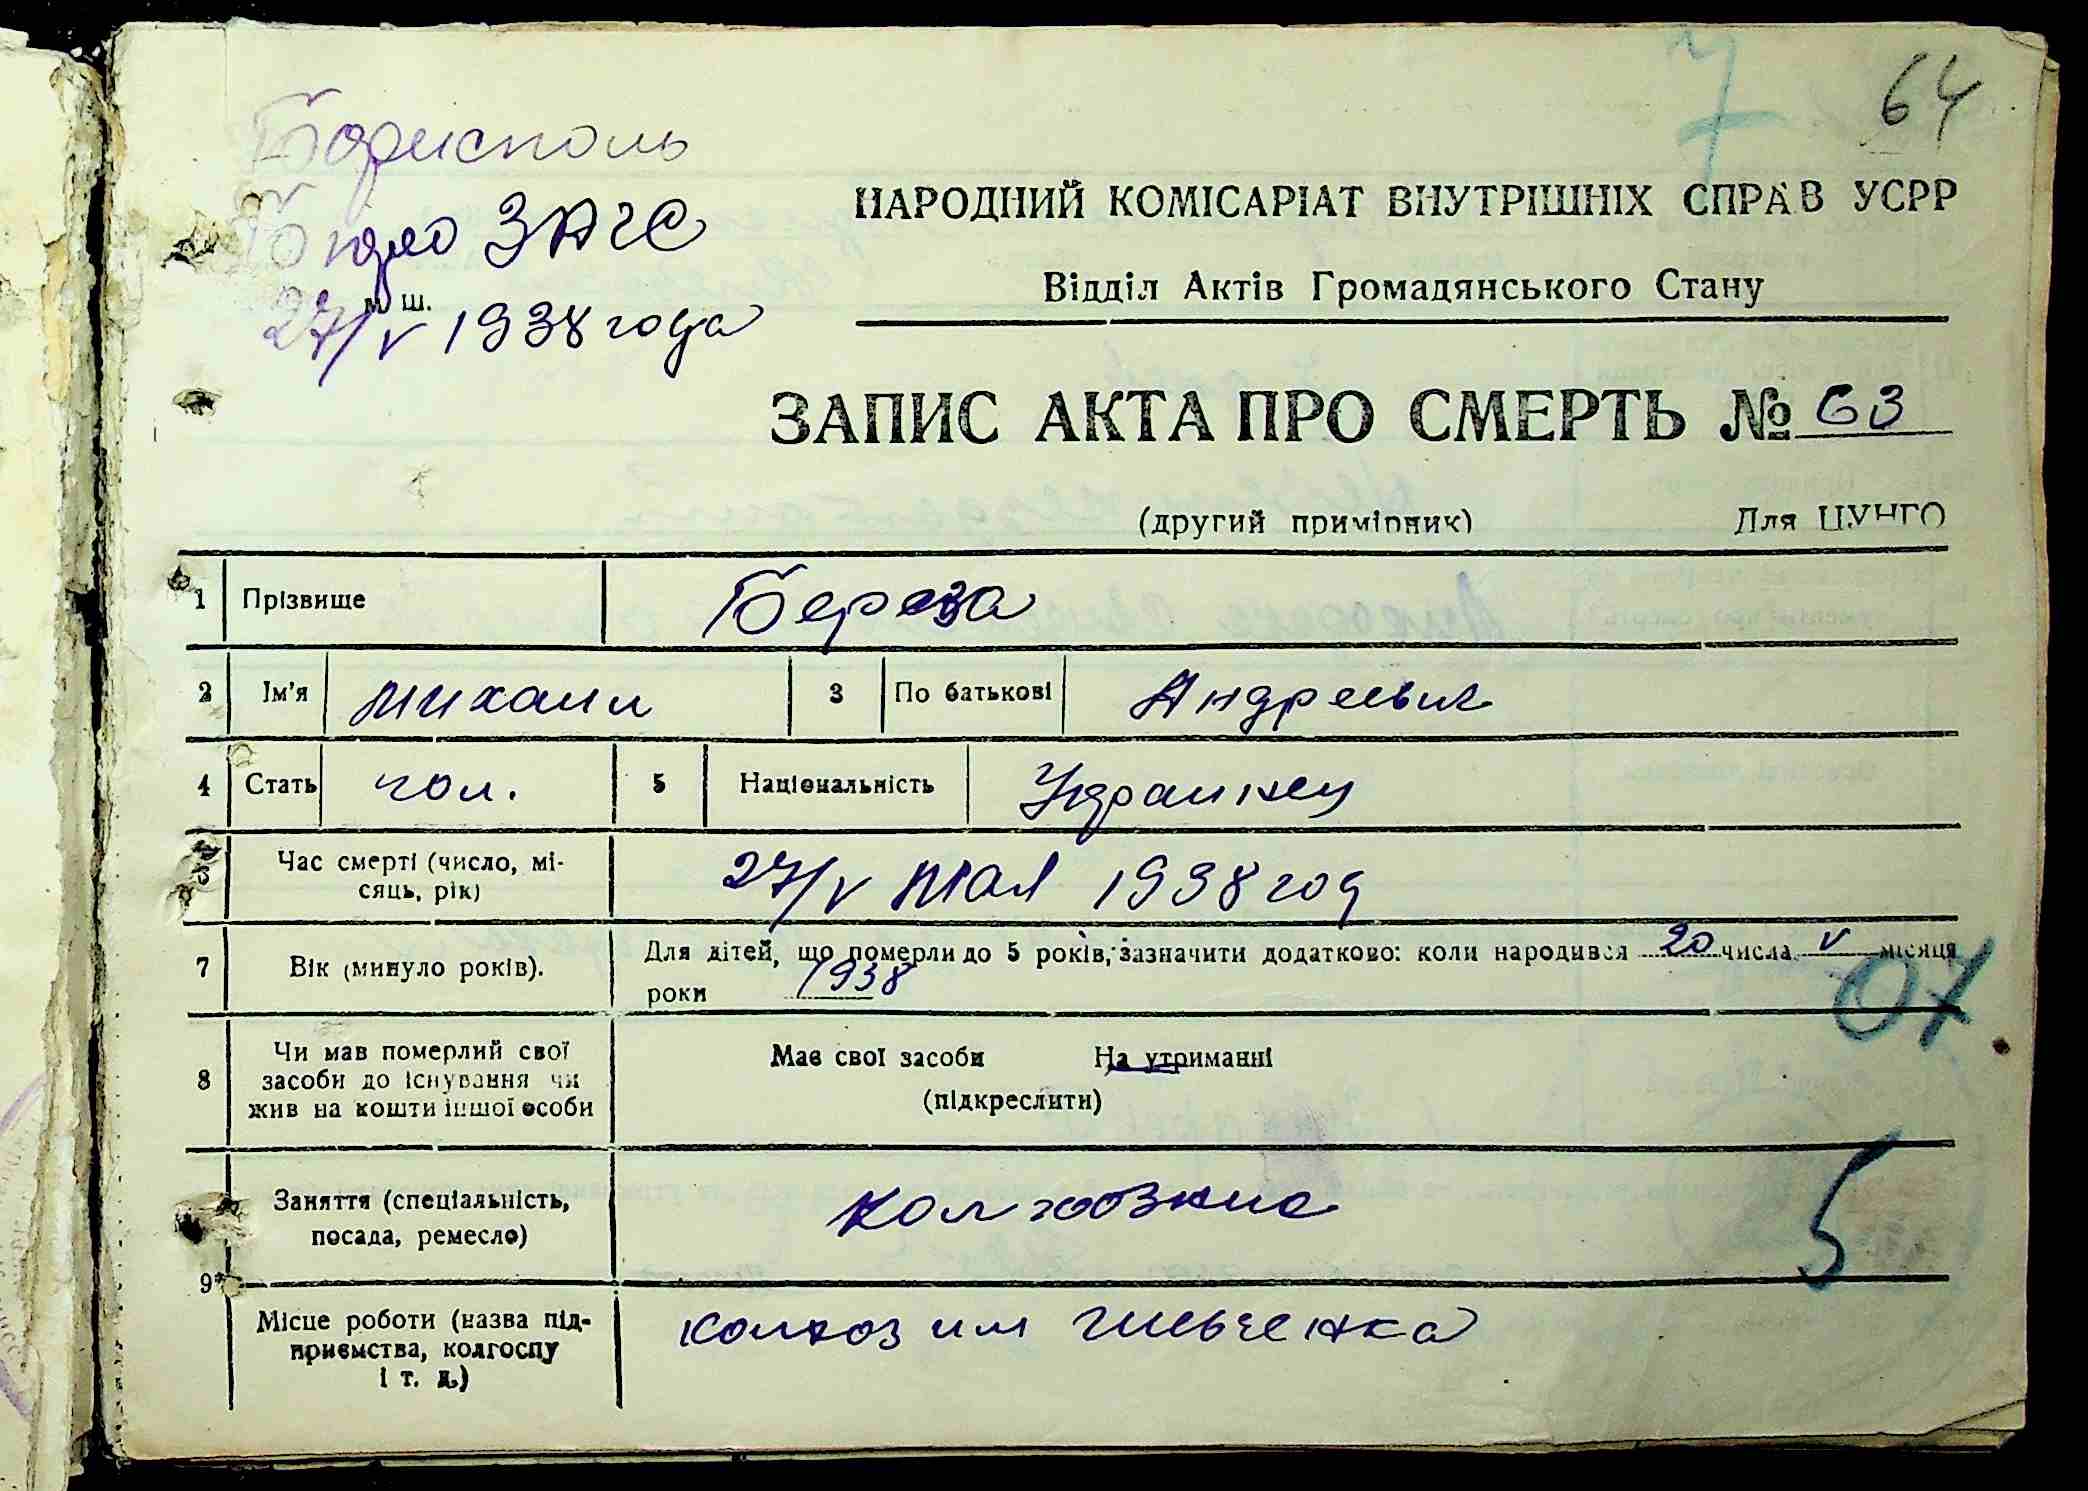 7
64
Борисполь
Бюро ЗАГС
м. ш.
27/V 1938 года
НАРОДНИЙ КОМІСАРІАТ ВНУТРІШНІХ СПРАВ УСРР
Відділ Актів Громадянського Стану
ЗАПИС АКТА ПРО СМЕРТЬ № 63
(другий примірник) Для ЦУНГО
1 Прізвище Береза
2 Ім'я Михаил 3 По батькові Андреевич
4 Стать чол. 5 Національність Украинец
Час смерті (число, мі-
сяць, рік) 27/V мая 1938 год
7 Вік (минуло років). Для дітей, що померли до 5 років, зазначити додатково: коли народився 20 числа V місяця
роки 1938
07
Чи мав померлий свої
8 засоби до існування чи
жив на кошти іншої особи
Має свої засоби На утриманні
(підкреслити)
Заняття (спеціальність,
посада, ремесло) колгозник
5
9
Місце роботи (назва під-
приємства, колгоспу
і т. д.)
колхоз им Шевченка